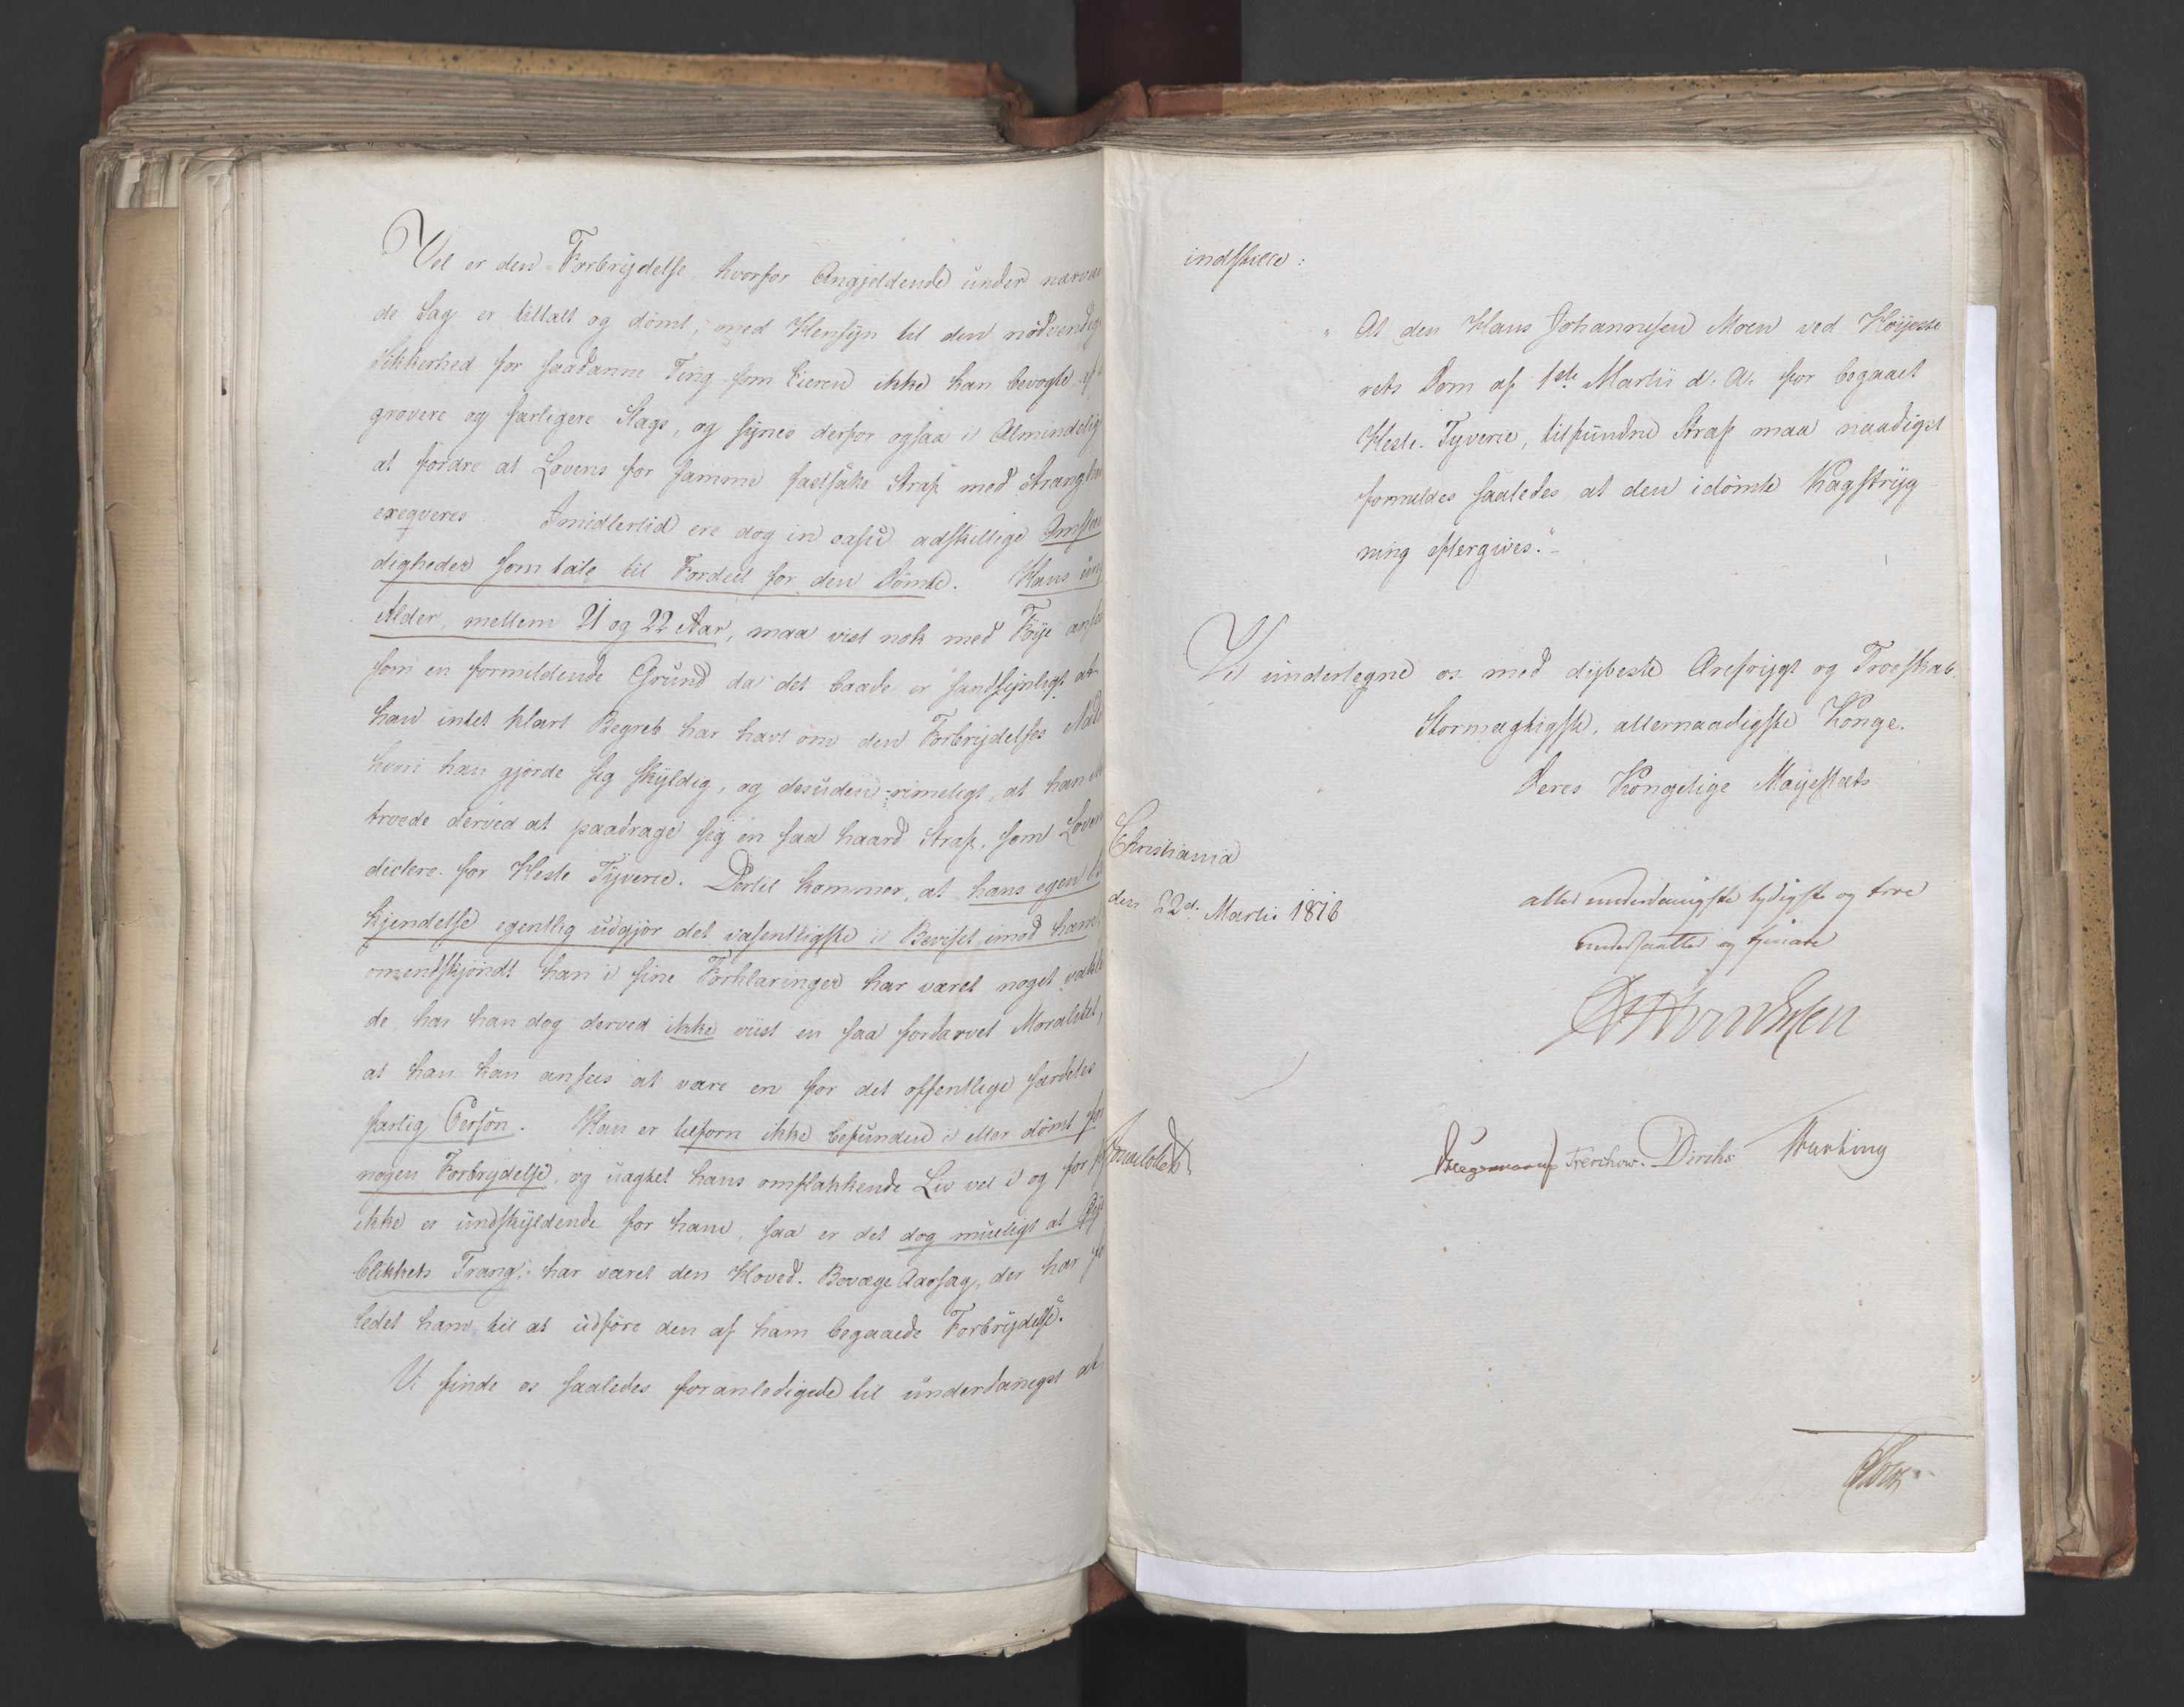 Vel er den Forbrydelse, hvorfor Angjeldende under nærvæ
de Sag er tiltalt og dømt, med Hensyn til den nødvendig
Sikkerhed for saadanne Ting som Eieren ikke kan bevogte, af
grovere og farligere Slags, og synes derfor ogsaa i Almindelig
at fordre at Lovens for samme fastsatte Straf med Stranghe
exeqveres. Imidlertid ere dog in casu adskillige Omstæn
digheder som tale til Fordeel for den Dømte. Hans ung
Alder, mellem 21 og 22 Aar, maa vist nok med Føye ansee
som en formildende Grund da det baade er sandsynligt at
han intet klart Begreb har havt om den Forbrydelses Natu
hvori han gjorde sig skyldig, og desuden rimeligt, at han ik
troede derved at paadrage sig en saa haard Straf, som Loven
dictere for Heste Tyverie. Dertil kommer, at hans egen Be
kjendelse egentlig udgjør det væsentligste i Beviset imod ham,
omendskjøndt han i sine Forklaringer har været noget vakle
de, har han dog derved ikke viist en saa fordærvet Moralitet,
at han kan ansees at være en for det offentlige særdeles
farlig Person. Han er tilforn ikke befunden i eller dømt for
nogen Forbrydelse, og uagtet hans omflakkende Liv vel i og for
ikke er undskyldende for ham, saa er det dog mueligt at Øje
blikkets Trang har været den Hoved-Bevæge Aarsag, der har for
ledet ham til at udføre den af ham begaaede Forbrydelse.
Vi finde os saaledes foranledigede til underdanigst at
indstille:
"At den Hans Johannesen Moen ved Høyeste
rets Dom af 1ste Martii d: A: for begaaet
Heste-Tyverie, tilfundne Straf maa naadigst
formildes saaledes, at den idømte Kagstryg-
ning eftergives."
Vi undertegne os med dybeste Ærefrygt og Troeskab
Stormægtigste, allernaadigste Konge.
Deres Kongelige Mayestæts
Christiania
den 22d. Martii 1816
allerunderdanigste lydigste og troe
undersaatter og tjenere
Formildet
Treschow. Diriks